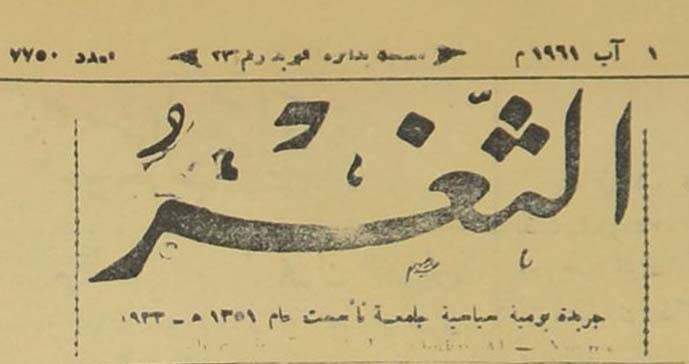 ١ آب ١٩٦١ م مسجلة بدائرة البريد رقم ٢٣ العدد ٧٧٥٠
الثَّغْرُ
جريدة يومية سياسية جامعة تأسست عام ١٣٥١ ه ـ ١٩٣٣